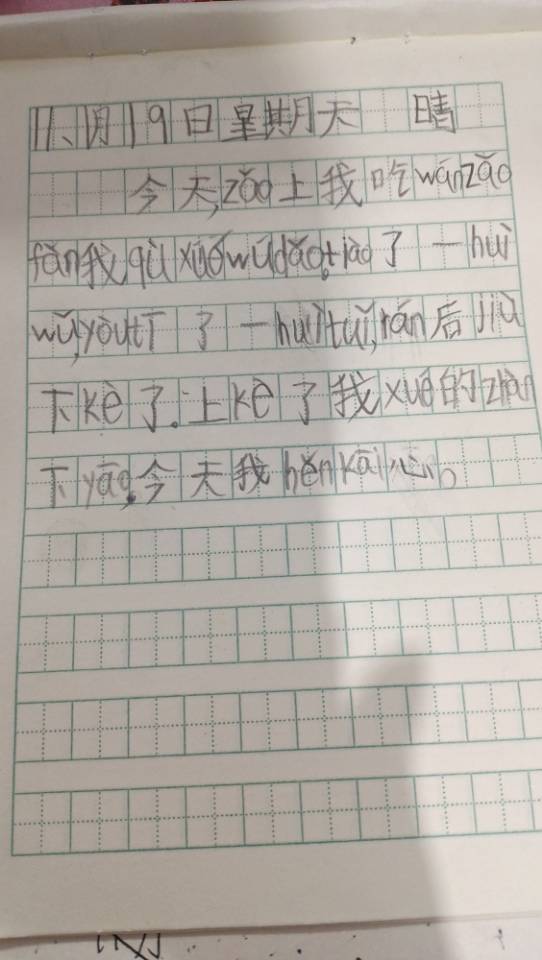 11、月19日星期天 晴
今天,zǎo上我吃wánzǎo
fǎn我qù xué wǔdǎo,tiào了一huì
wǔ,yòu tī了一huì tuǐ,rán后jiù
下kè了.上kè了我xué的zhàn
下yāo,今天我hěnkāi心。